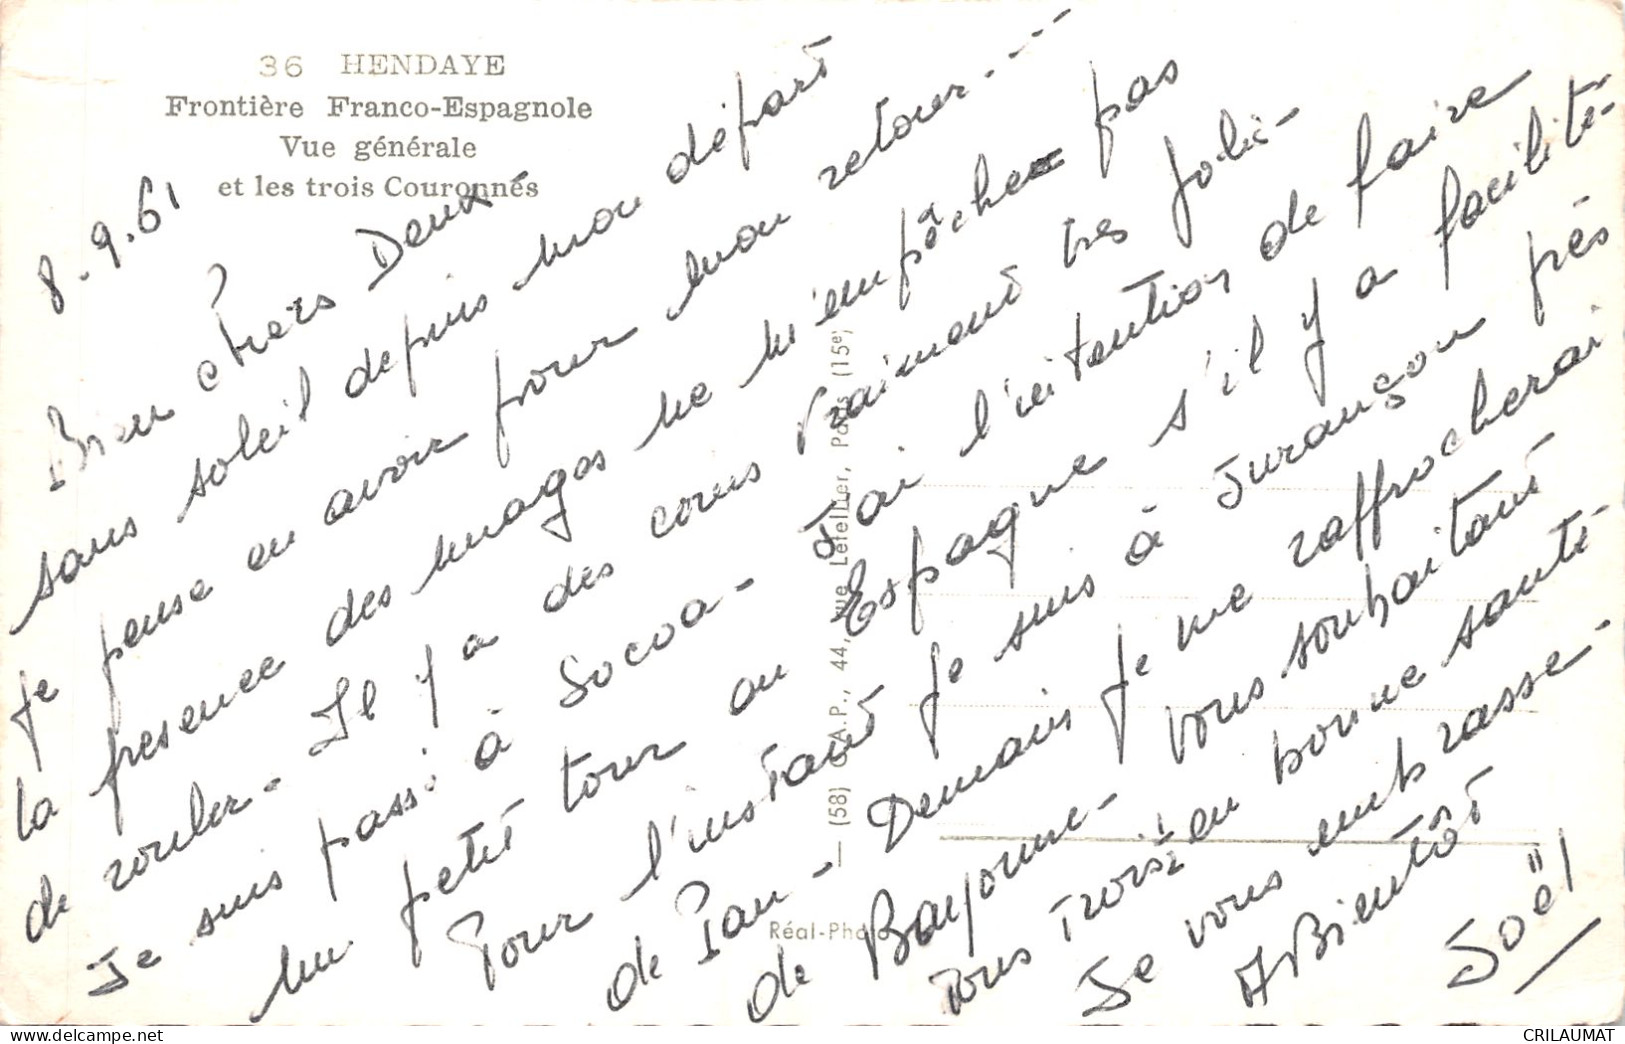 36 HENDAYE
Frontière Franco-Espagnole
Vue générale
et les trois Couronnés
8.9.61
Bien chers Deux
sans soleil depuis mon départ
je pense en avoir pour mon retour ---
la presence des nuages ne m'empêche pas
de rouler - Il y a des coins vraiment tres joli -
Je suis passé à Socoa - J'ai l'intention de faire
un petit tour en Espagne s'il y a facilité -
Pour l'instant je suis à Jurançon près
de Pau - Demain je me rapprocherai
de Bayonne - vous souhaitant
tous Trois en bonne santé
Je vous embrasse -
A Bientôt
Joël
— (58) C.A.P., 44, rue Letellier, Paris (15e)
Réal-Photo
delcampe.net
CRILAUMAT